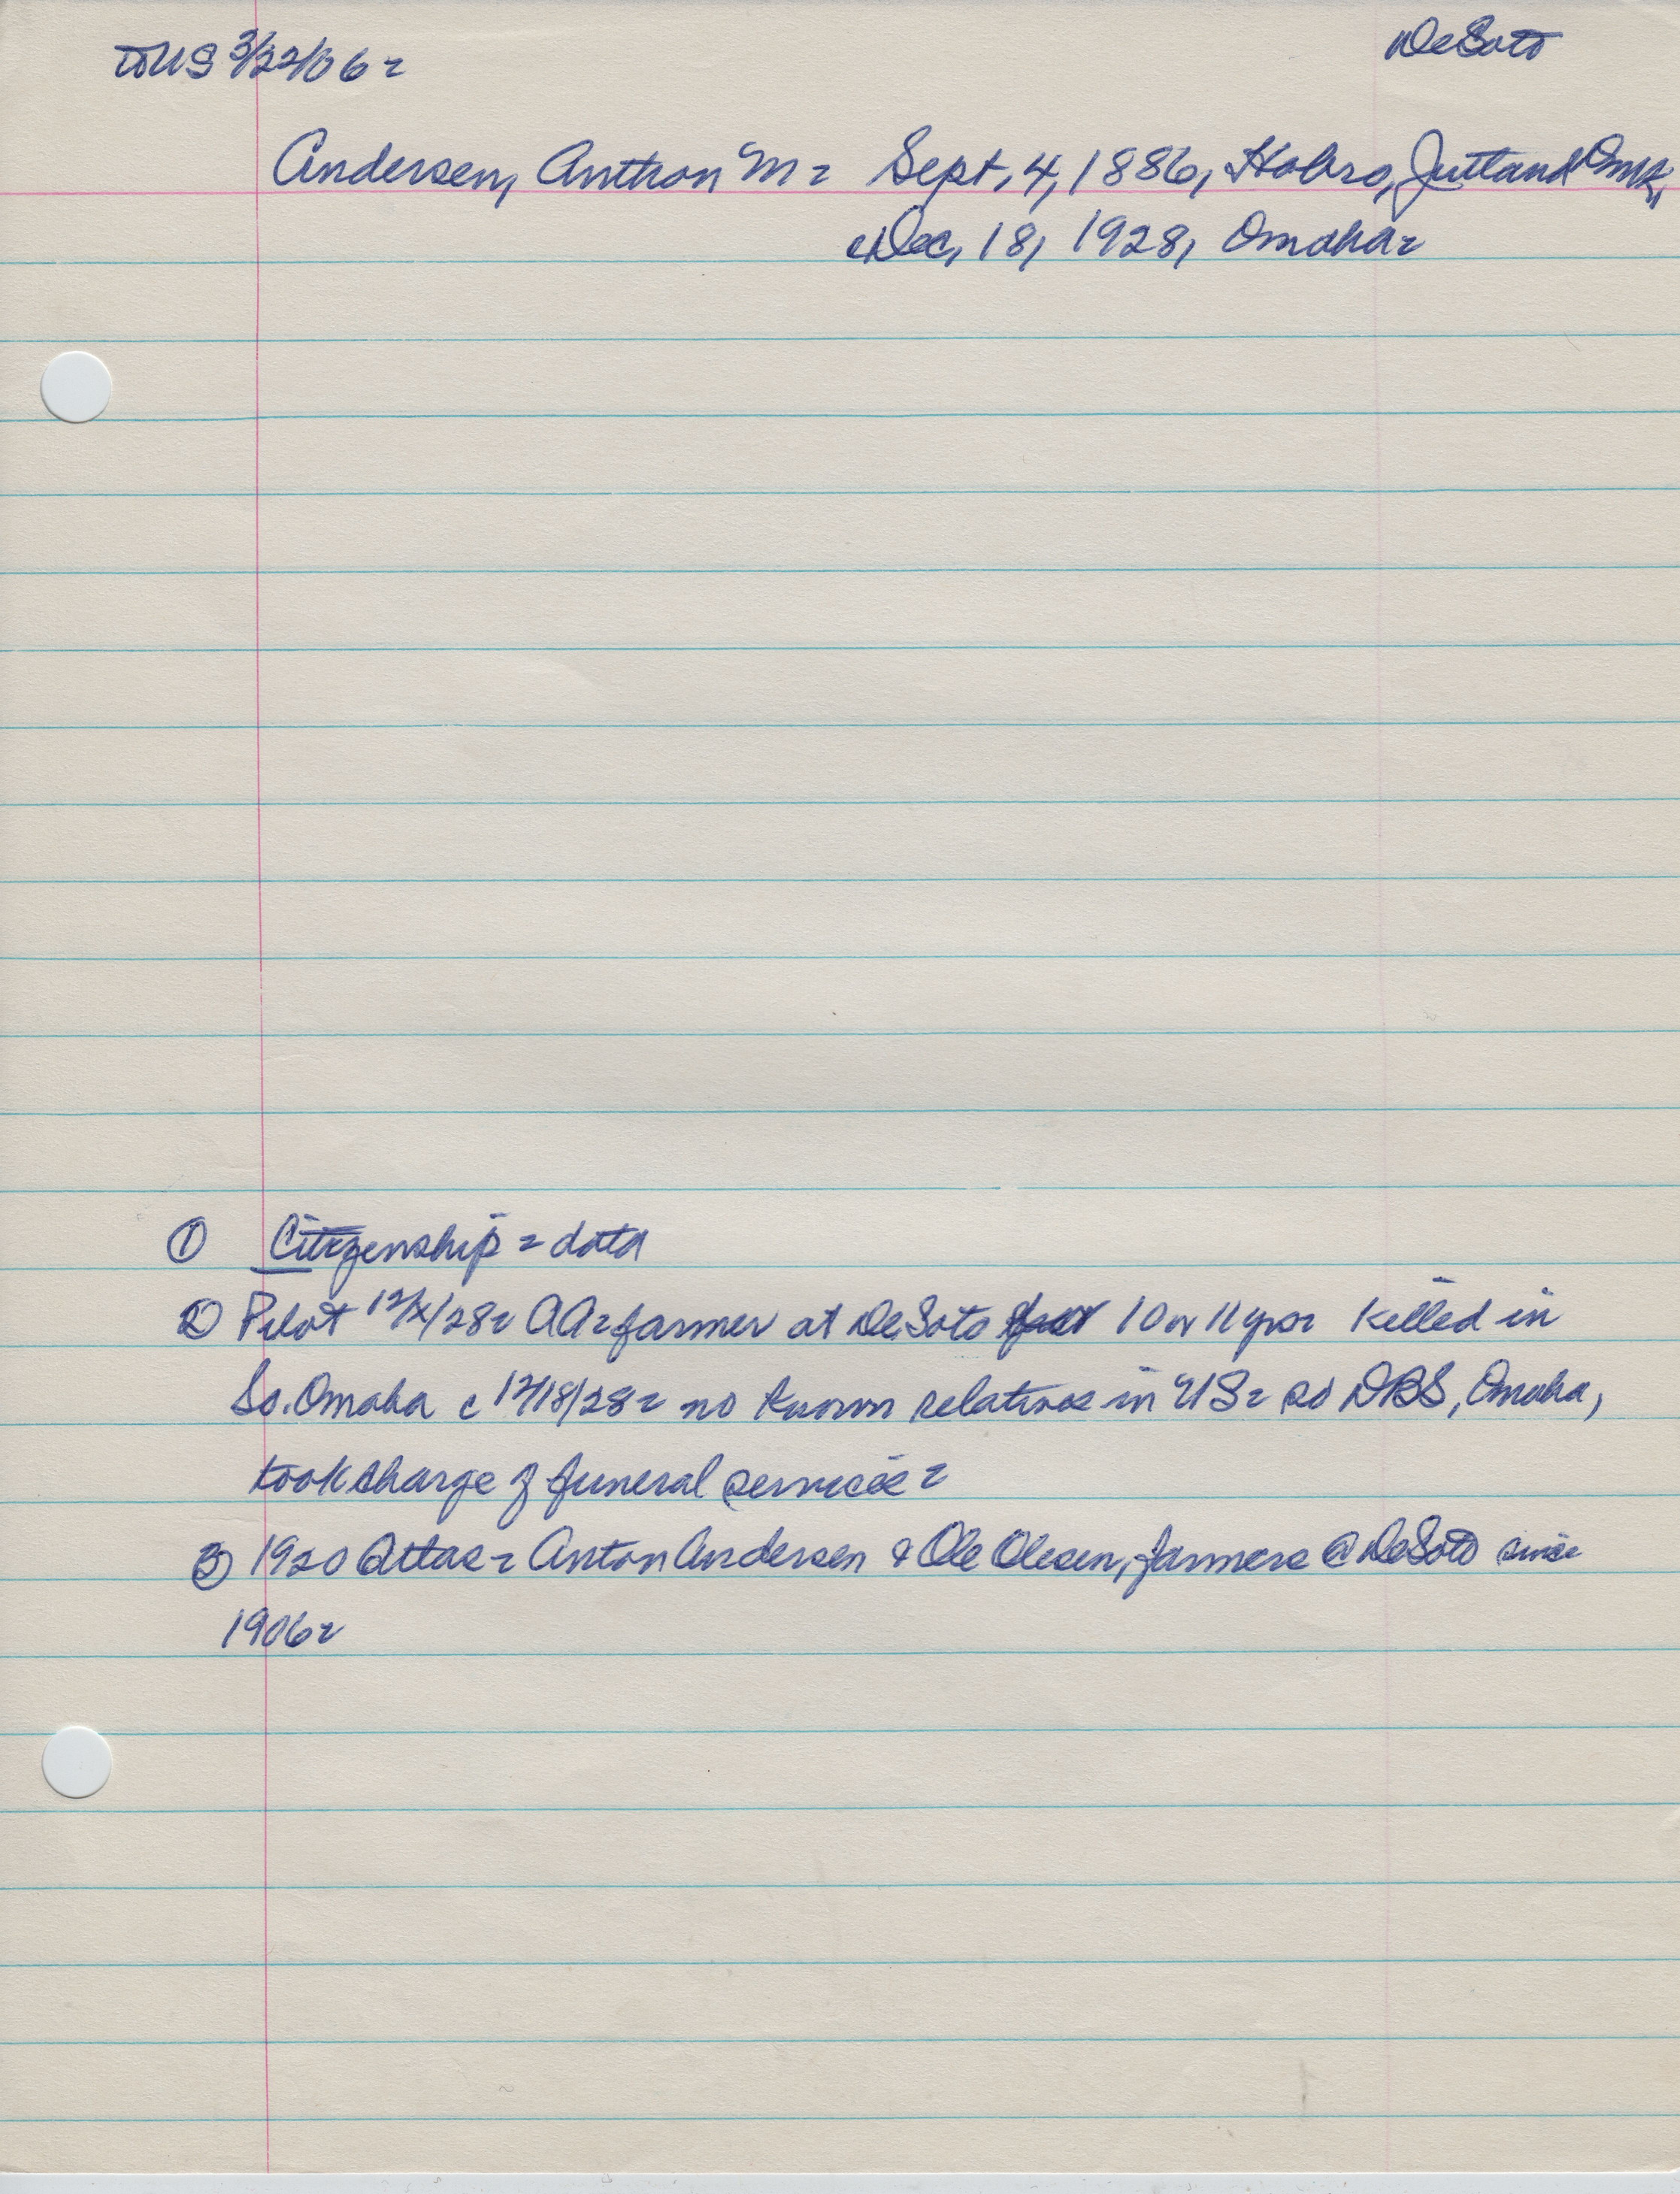 to US 3/22/06 -
DeSoto
Andersen, Anthon M - Sept. 4, 1886, Hobro, Jutland Dmk,
c Dec, 18, 1928, Omaha -
① Citizenship - data
② Pilot 12/x/28 - AA - farmer at DeSoto 10 or 11 yrs - killed in
So. Omaha c 12/18/28 - no known relatives in US - so DBS, Omaha,
took charge of funeral services -
③ 1920 Atlas - Anton Andersen & Ole Olesen, farmers @ DeSoto since
1906 -